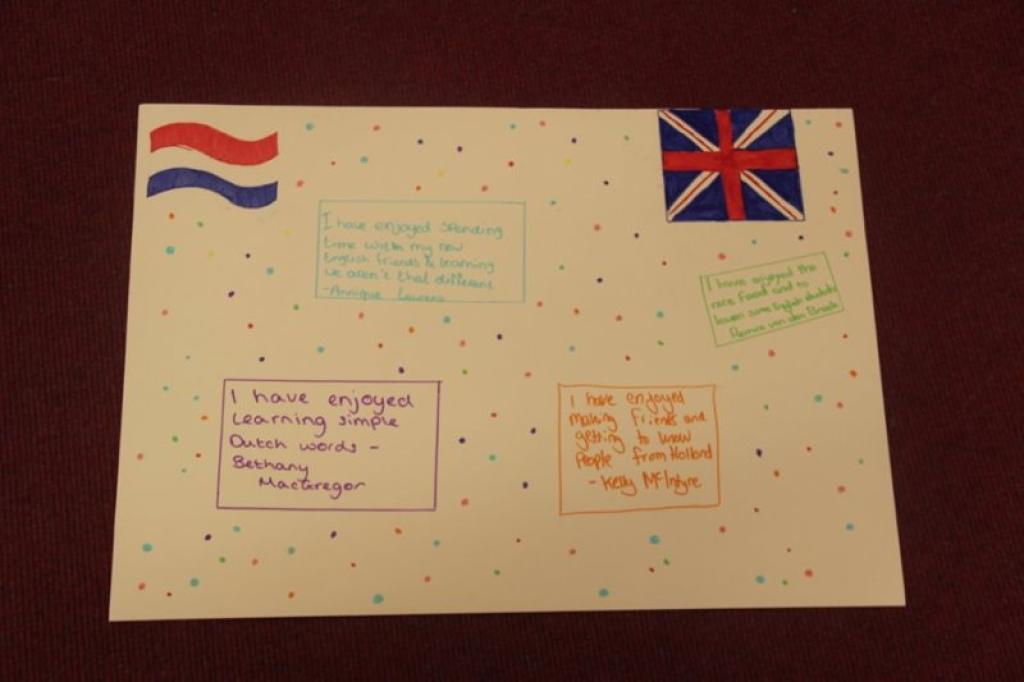 I have enjoyed spending
time with my new
English friends & learning
we aren't that different
- Annique
I have enjoyed the
food and to
learn some English
van den
I have enjoyed
Learning simple
Dutch words -
Bethany
MacGregor
I have enjoyed
making friends and
getting to know
People from Holland
- Kelly McIntyre